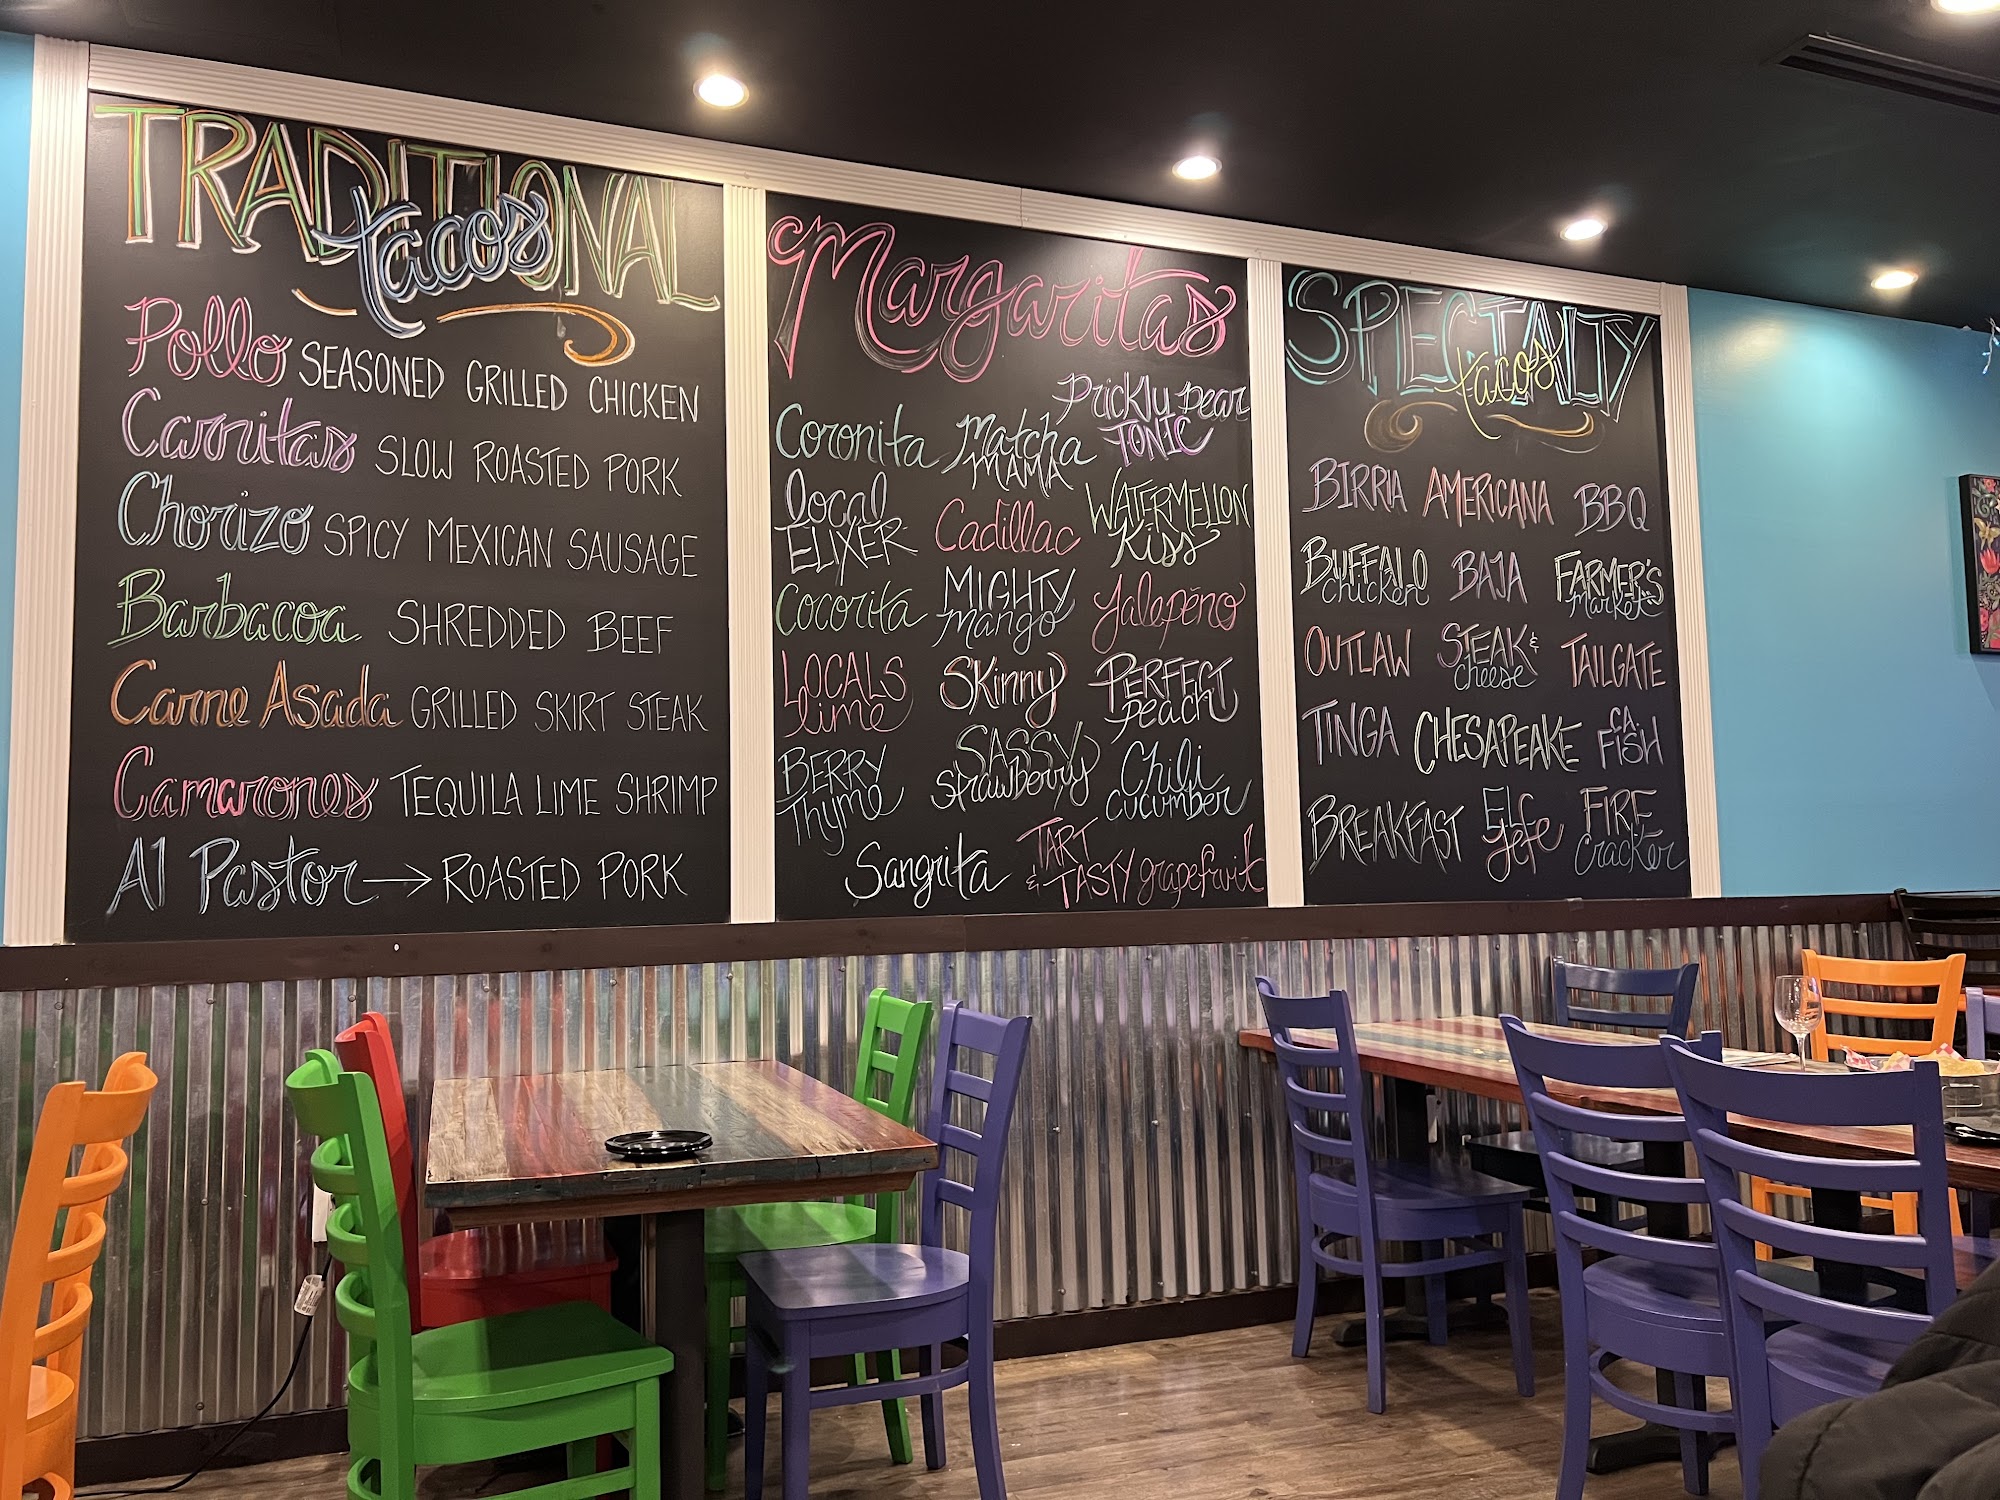 TRADITIONAL
tacos
Pollo SEASONED GRILLED CHICKEN
Carnitas SLOW ROASTED PORK
Chorizo SPICY MEXICAN SAUSAGE
Barbacoa SHREDDED BEEF
Carne Asada GRILLED SKIRT STEAK
Camarones TEQUILA LIME SHRIMP
Al Pastor → ROASTED PORK
Margaritas
Coronita
Matcha
MAMA
Prickly pear
TONIC
local
ELIXER
Cadillac
WATERMELLON
Kiss
Cocorita
MIGHTY
mango
Jalepéno
LOCALS
lime
Skinny
PERFECT
peach
BERRY
Thyme
SASSY
Strawberry
Chili
cucumber
Sangrita
TART
& TASTY grapefruit
SPECIALTY
tacos
BIRRIA AMERICANA BBQ
BUFFALO
chicken
BAJA
FARMER'S
market
OUTLAW
STEAK &
cheese
TAILGATE
TINGA CHESAPEAKE
CA.
FISH
BREAKFAST
EL
Jefe
FIRE
cracker